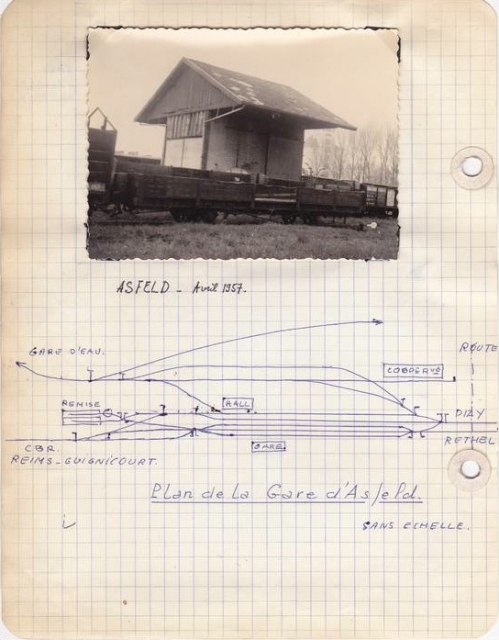 ASFELD - Avril 1957.
GARE D'EAU.
ROUTE
COOPÉR
REMISE
HALL
DIZY
RETHEL
GARE
CBR.
REIMS-GUIGNICOURT.
Plan de la Gare d'Asfeld.
SANS ECHELLE.